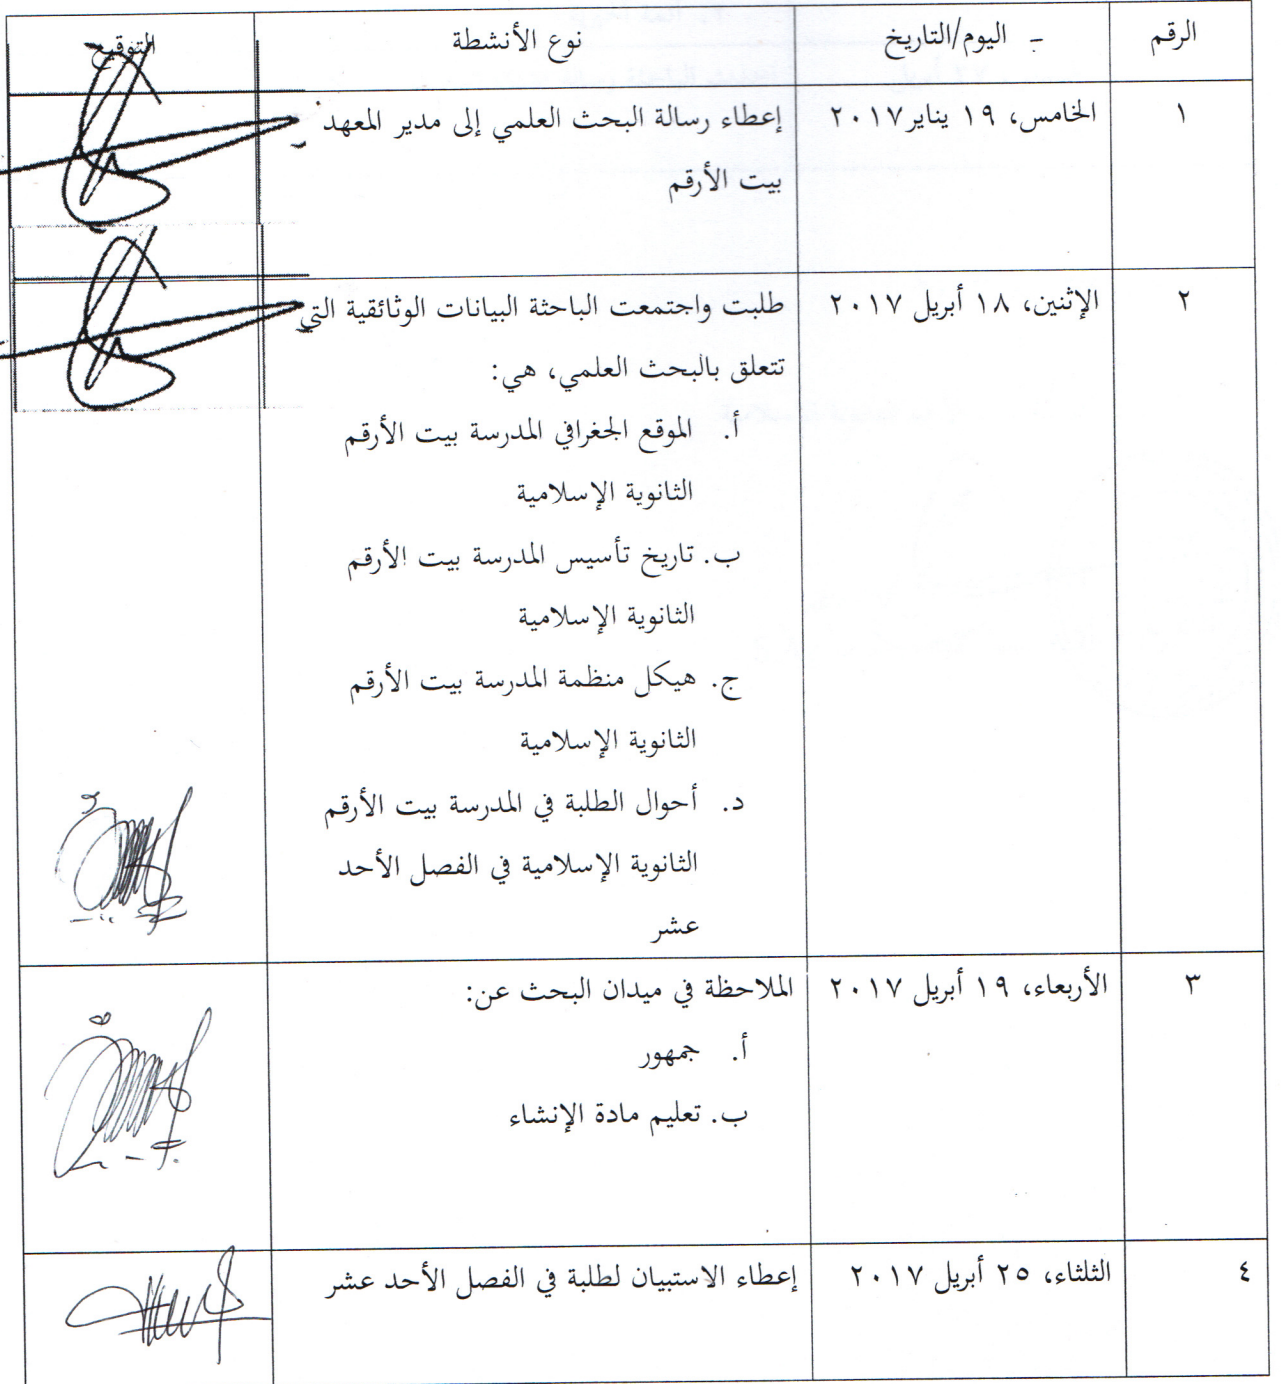 الرقم
- اليوم/التاريخ
نوع الأنشطة
التوقيع
١
الخامس، ١٩ يناير ٢٠١٧
إعطاء رسالة البحث العلمي إلى مدير المعهد
بيت الأرقم
٢
الإثنين، ١٨ أبريل ٢٠١٧
طلبت واجتمعت الباحثة البيانات الوثائقية التي
تتعلق بالبحث العلمي، هي:
أ. الموقع الجغرافي المدرسة بيت الأرقم
الثانوية الإسلامية
ب. تاريخ تأسيس المدرسة بيت الأرقم
الثانوية الإسلامية
ج. هيكل منظمة المدرسة بيت الأرقم
الثانوية الإسلامية
د. أحوال الطلبة في المدرسة بيت الأرقم
الثانوية الإسلامية في الفصل الأحد
عشر
٣
الأربعاء، ١٩ أبريل ٢٠١٧
الملاحظة في ميدان البحث عن:
أ. جمهور
ب. تعليم مادة الإنشاء
٤
الثلثاء، ٢٥ أبريل ٢٠١٧
إعطاء الاستبيان لطلبة في الفصل الأحد عشر